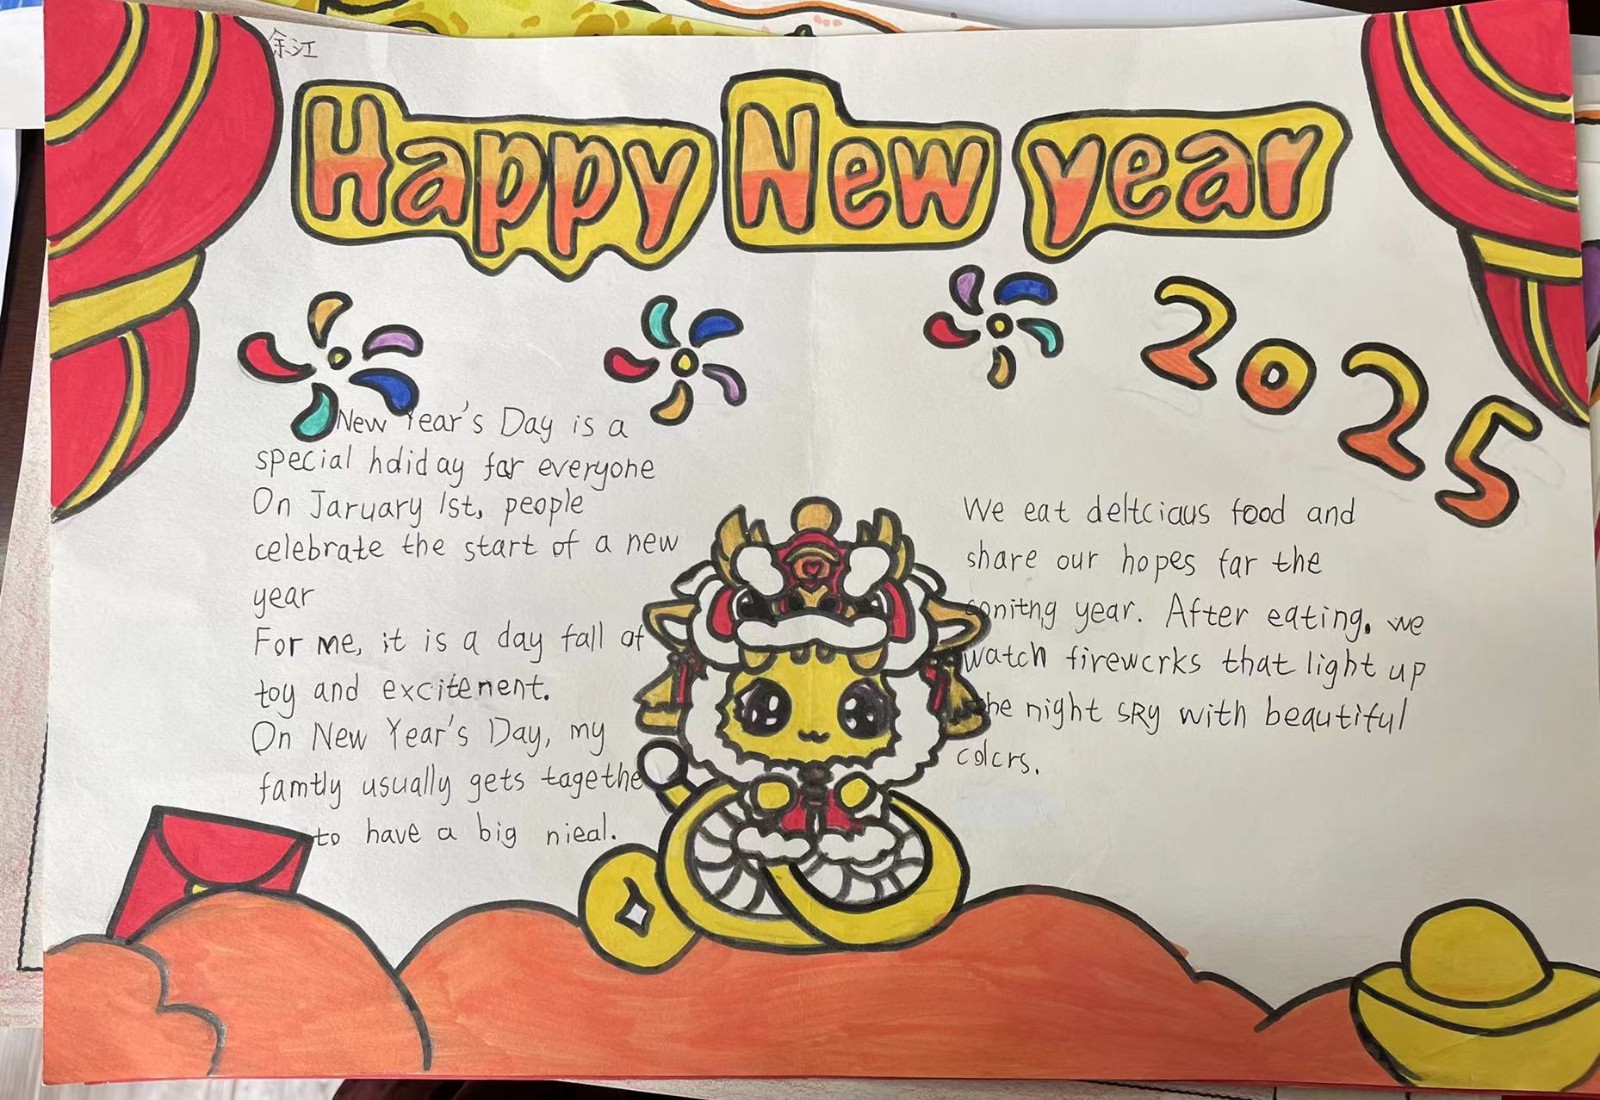 余江
Happy New year
2025
New Year's Day is a
special hdiday far everyone
On Jaruary 1st, people
celebrate the start of a new
year
For me, it is a day fall of
toy and excitenent.
On New Year's Day, my
famtly usually gets tagethe
to have a big nieal.
We eat deltciaus food and
share our hopes far the
conitng year. After eating. we
watch firewcrks that light up
the night sRy with beautiful
colcrs.